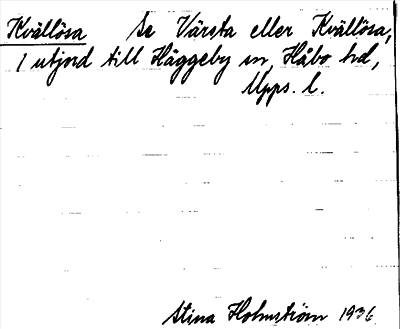 Kvällösa Se Värsta eller Kvällösa,
1 utjord till Häggeby sn, Håbo hd,
Upps. l.
Stina Holmström 1936